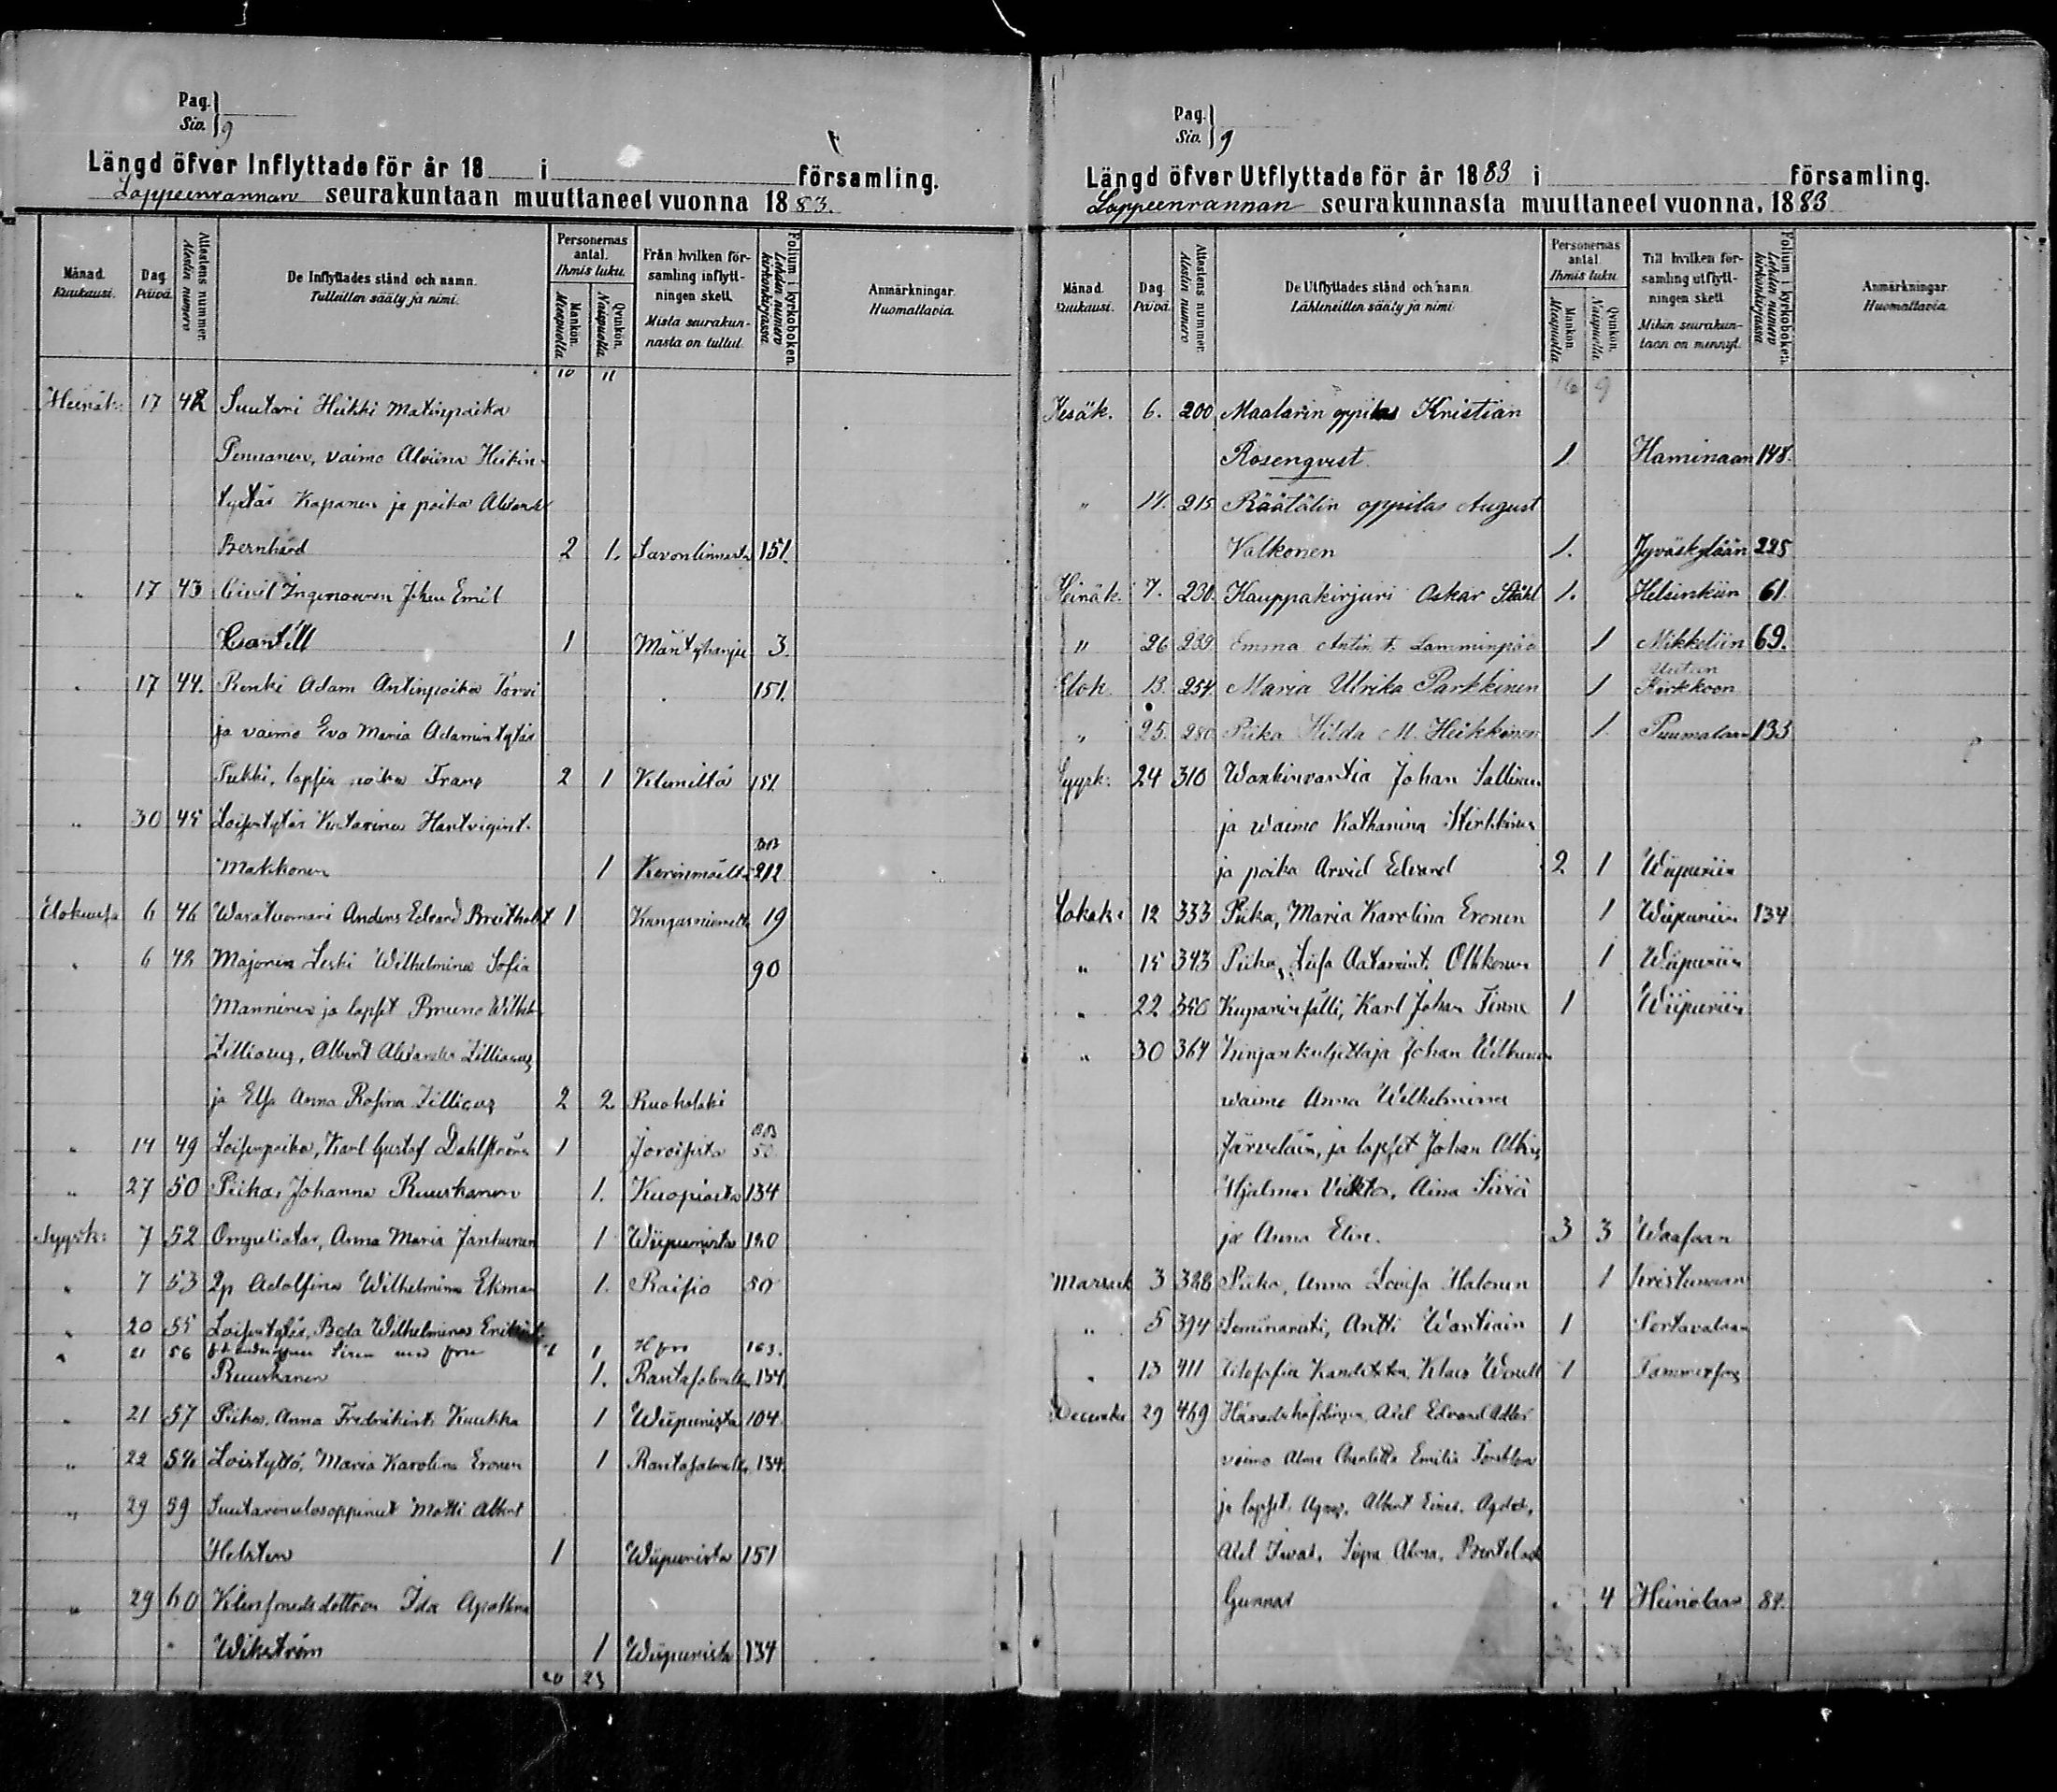 Pag.
Siv. 9
Längd öfver Inflyttade för år 18 i församling.
Lappeenrannan seurakuntaan muuttaneet vuonna 1883.
Månad. Kuukausi.
Dag. Päivä.
Attestens nummer. Atestin numero
De Inflyttades stånd och namn. Tulleitten sääty ja nimi.
Personernas antal. Ihmis luku.
Mankön. Miespuolia
Qvinkön. Naispuolia
Från hvilken församling inflyttningen skett. Mista seurakunnasta on tullut.
Folium i kyrkoboken. Lehden numero kirkonkirjassa
Anmärkningar. Huomattavia.
10 11
Heinäk. 17 42 Suutari Heikki Matinpoika
Pennanen, vaimo Alviina Heikin-
tytär Kapanen ja poika
Bernhard 2 1. Savonlinnasta 151.
" 17 43 Civil Ingenieuren Johan Emil
1 Mäntyharju 3.
" 17 44. Renki Adam Antinpoika Torvi 151.
ja vaimo Eva Maria Adamintytär
Pukki, lapsia poika Frans 2 1 Klemiltä 151
" 30 45 Loisentytär Katarina
Makkonen 1 Kerimäeltä 212
Elokuussa 6 46 Waratuomari Anders Edvard Breitholtz 1 Kangasniemeltä 19
" 6 48 Majorin Leski Wilhelmina Sofia 90
Manninen ja lapset Bruno Wilhelm
Zilliacus, Albert Alexander Zilliacus
ja Elsa Anna Rosina Zilliacus 2 2 Ruokolaki
" 14 49 Loisenpoika, Karl Gustaf Dahlström 1 Joroisista 50
" 27 50 Piika, Johanna Ruuskanen 1. Kuopiosta 134
Syysk: 7 52 Ompeliatar, Anna Maria Janhunen 1 Wiipurista 120
" 7 53 Dp Adolfina Wilhelmina Ekman 1. Raisio 50
" 20 55 Loisentytär, Beda Wilhelmina
" 21 56 Siren med fru 1 1 H fors 163.
Ruuskanen 1. Rantasalmelta 134.
" 21 57 Piika, Anna Fredrikint. Kuukka 1 Wiipurista 104
" 22 58 Loistyttö, Maria Karolina Eronen 1 Rantasalmelta 134.
" 29 59 Suutarinulosoppinut Matti Albert
Helsten 1 Wiipurista 151
" 29 60 Klensmedsdottren Ida
Wikström 1 Wiipurista 134
20 23
Pag.
Siv. 9
Längd öfver Utflyttade för år 1883 i församling.
Lappeenrannan seurakunnasta muuttaneet vuonna. 1883
Månad. Kuukausi.
Dag. Päivä.
Attestens nummer. Atestin numero
De Utflyttades stånd och namn. Lähteneitten sääty ja nimi
Personernas antal. Ihmis luku.
Mankön. Miespuolia
Qvinkön. Naispuolia
Till hvilken församling utflyttningen skett. Mihin seurakuntaan on mennyt.
Folium i kyrkoboken. Lehden numero kirkonkirjassa
Anmärkningar. Huomattavia.
16 9
Kesäk. 6. 200 Maalarin oppilas Kristian
Rosenqvist 1 Haminaan 148.
" 11. 215 Räätälin oppilas August
Valkonen 1. Jyväskylään 225
Heinäk. 7. 230. Kauppakirjuri Oskar Ståhl 1. Helsinkiin 61
" 26 239 Emma Antin t. Lamminpää 1 Mikkeliin 69.
Elok. 13. 254 Maria Ulrika Parkkinen 1 Uuteen Kirkkoon
" 25. 280 Piika Hilda M. Heikkinen 1. Puumalaan 133
Syysk: 24 310 Wankinvartia Johan Sallinen
ja waimo Katharina
ja poika Arvid Edvard 2 1 Wiipuriin
Lokak: 12 333 Piika, Maria Karolina Eronen 1 Wiipuriin 134
" 15 343 Piika, Liisa Aatamint. Olkkonen 1 Wiipuriin
" 22 350 Kuparinsälli, Karl Johan Finne 1 Wiipuriin
" 30 364 Kirjankuljettaja Johan
waimo Anna Wilhelmina
Järveläin, ja lapset Johan Albin,
Hjalmar Viktor, Aina Siviä
ja Anna Elin. 3 3 Waasaan
Marrask 3 388 Piika, Anna Lovisa Halonen 1 Kristiinaan
" 5 394 Seminaristi, Antti Wartiain 1 Sortavalaan
" 13 411 Filosofia Kandidaten, Klas 1 Tammerfors
December 29 469 Häradshöfdingen, Axel Edvard Adler
vaimo Alma Charlotta Emilia
ja lapset. Agnes, Albert Einar,
Axel Ivar, Signe Alma,
Gunnar 4 Heinolaan 84.